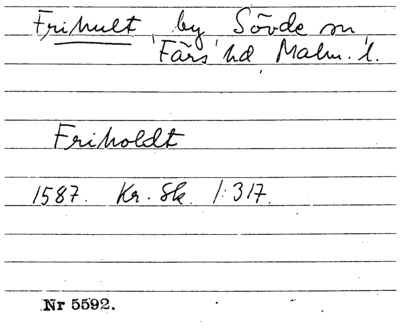 Frihult, by Sövde sn,
Färs hd Malm. l.
Friholdt
1587. Kr. Sk. 1:317.
Nr 5592.